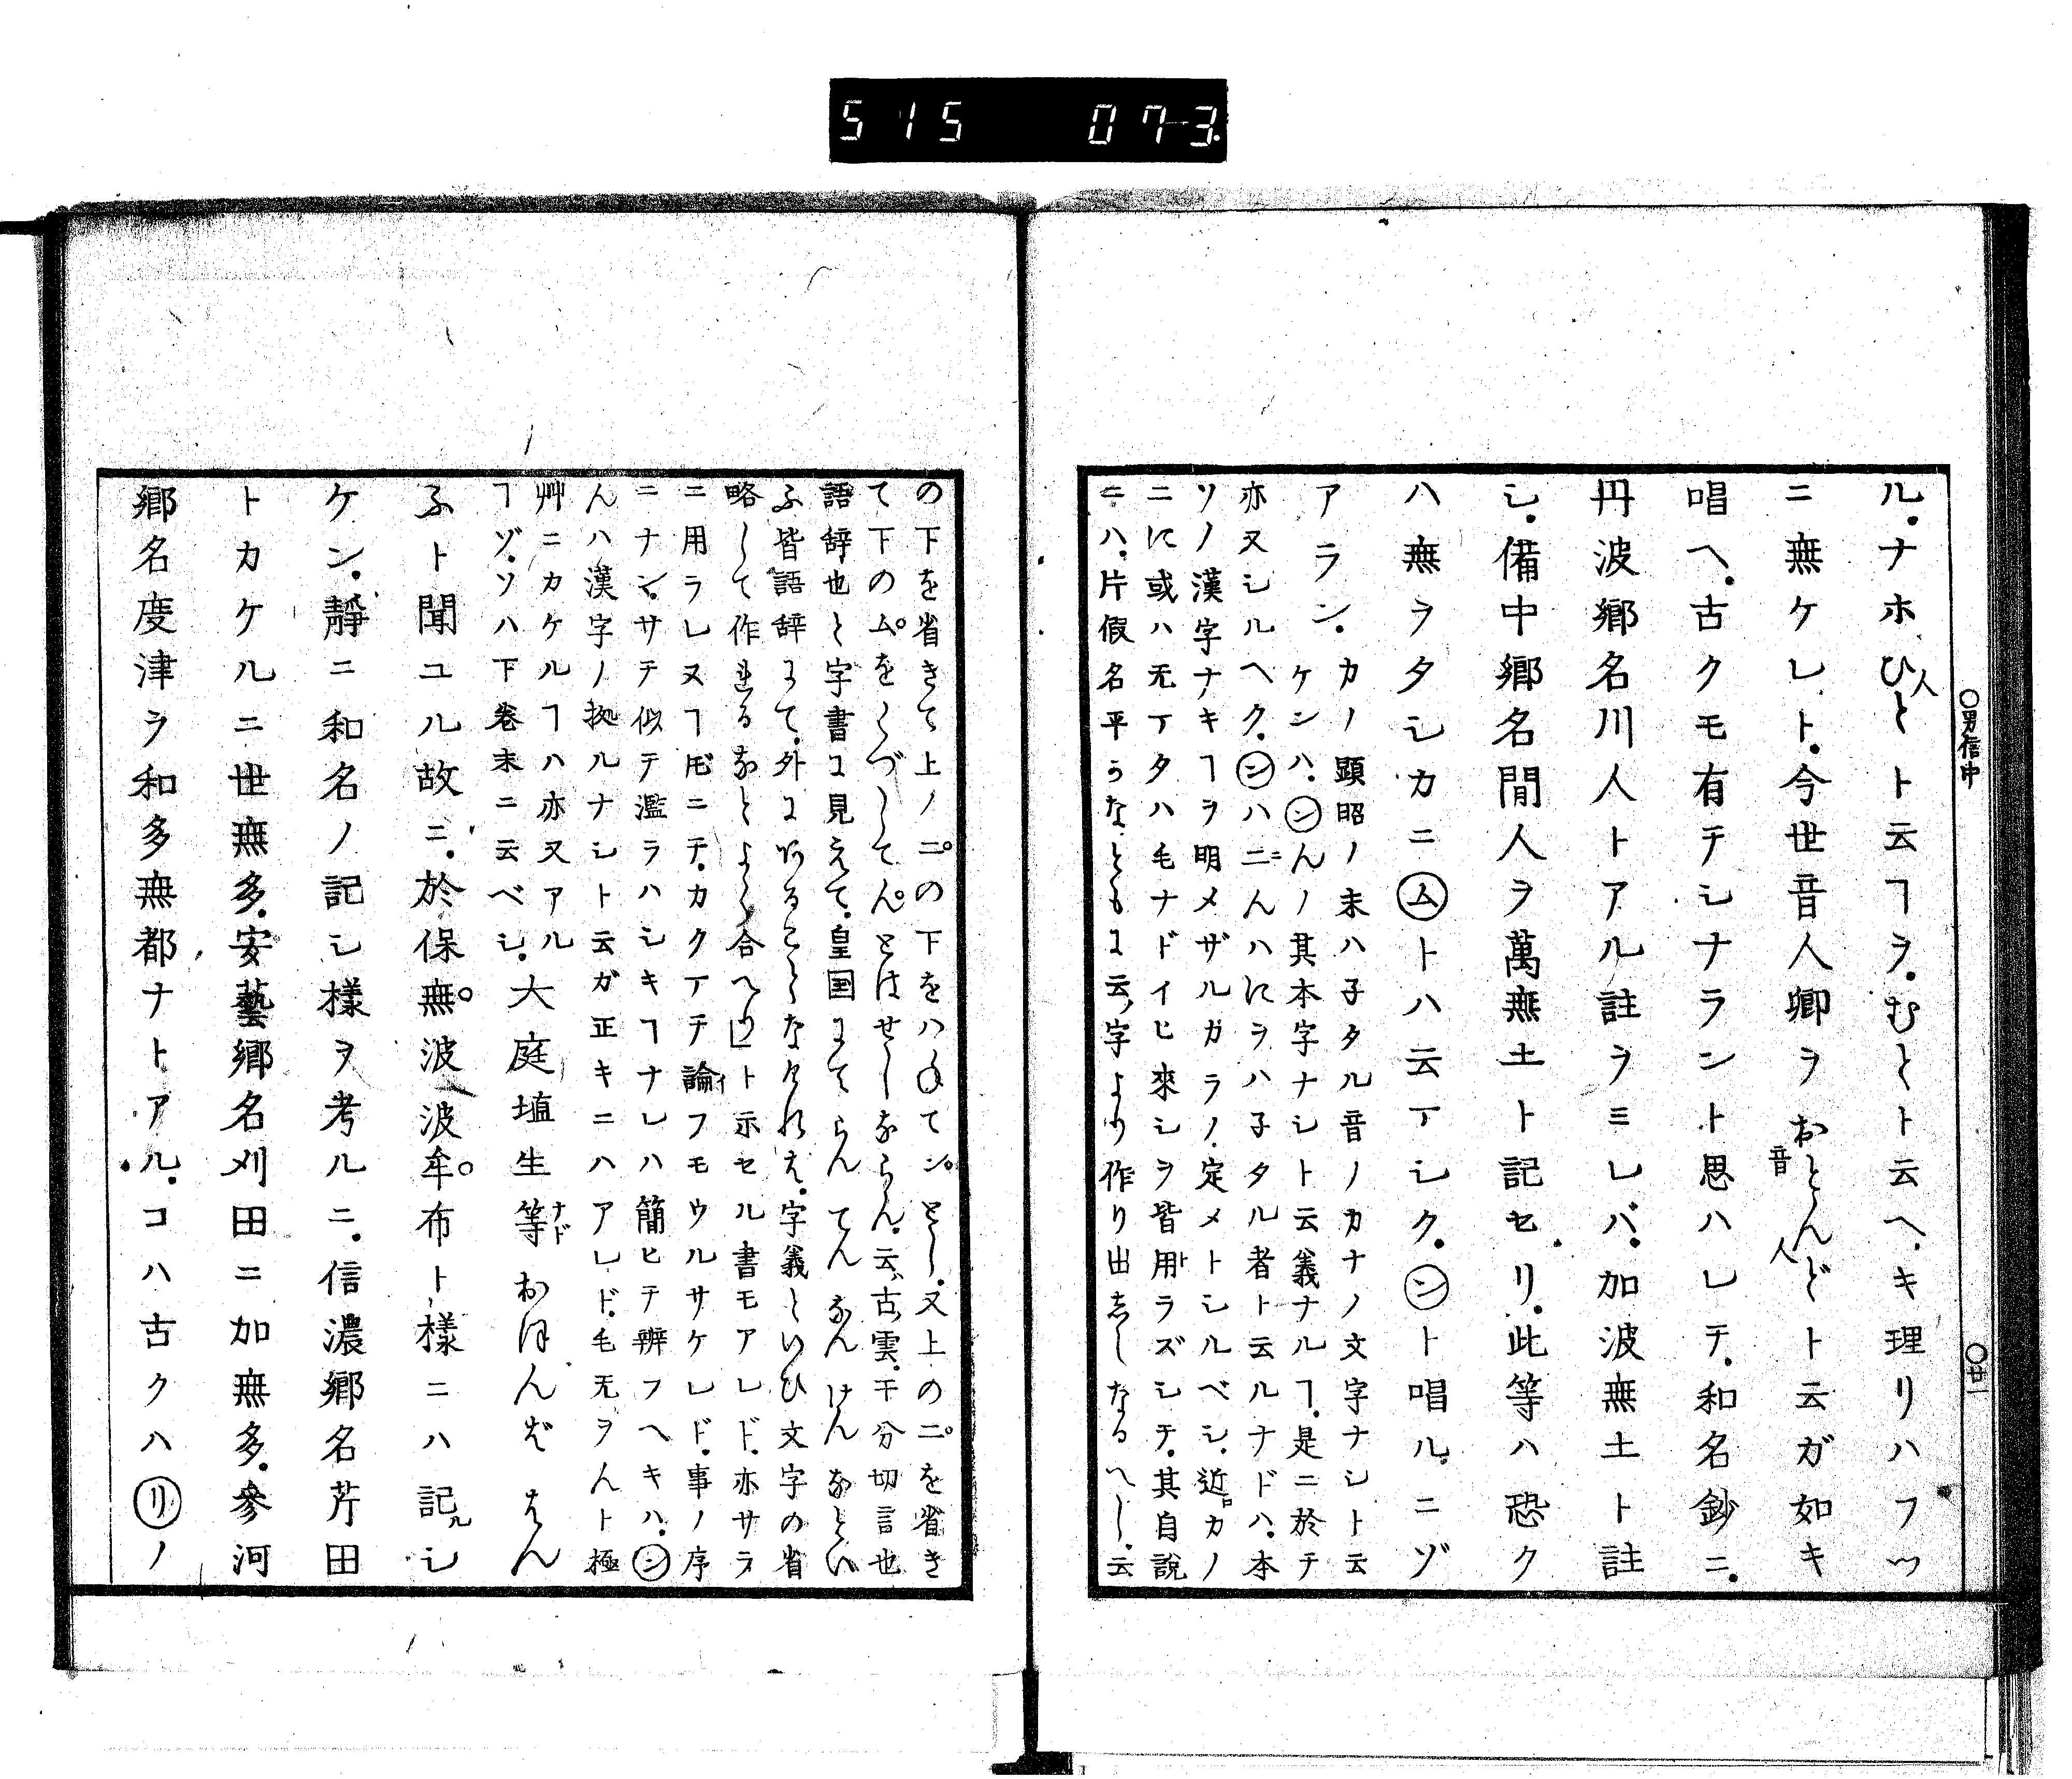 515 073
〇男信中
〇廿一
ル。ナホひとト云ヿヲ。むとト云ヘキ理リハフツ
人
ニ無ケレト。今世音人卿ヲおとんどト云ガ如キ
音人
唱ヘ。古クモ有チシナラント思ハレテ。和名鈔ニ。
丹波郷名川人トアル註ヲミレバ。加波無土ト註
シ。備中郷名間人ヲ萬無土ト記セリ。此等ハ恐ク
ハ無ヲタシカニムトハ云アシク。ント唱ル。ニゾ
アラン。カノ顕昭ノ末ハ子タル音ノカナノ文字ナシト云
ケンハ。ンんノ其本字ナシト云義ナルヿ。是ニ於テ
亦又シルヘク。ンハニんハにヲハ子タル者ト云ルナドハ。本
ソノ漢字ナキヿヲ明メザルガラノ。定メトシルベシ。近ロカノ
ニに或ハ无アタハ毛ナドイヒ來シヲ皆用ラズシテ。其自説
ニハ。片假名平うな。ともに云。字より作り出しなるへし。云
の下を省きて上ノ二。の下をハねてン。とし。又上の二。を省き
て下のム。をくづしてん。とはせしならん。云。古雲。干分切言也
語辞也と字書に見えて。皇国にてらんてんなんけんなとい
ふ皆語辞にて。外にあることなけれは。字義といひ文字の省
略して作れるなとよく合へりトホセル書モアレド。亦サラ
ニ用ラレヌヿ𪜈ニテ。カクアチ論フモウルサケレド。事ノ序
ニナン。サテ似テ濫ラハシキヿナレハ簡ヒテ辨フヘキハ。ン
んハ漢字ノ拠ルナシト云ガ正キニハアレド。毛无ヲんト極
艸ニカケルヿハ亦又アル
ヿゾ。ソハ下卷末ニ云ベシ。大庭埴生等おほんばはん
ナド
ふト聞ユル故ニ。於保無。波波牟。布ト樣ニハ記シ
ケン。靜ニ和名ノ記シ樣ヲ考ルニ。信濃郷名芹田
トカケルニ世無多。安藝郷名刈田ニ加無多。參河
郷名度津ヲ和多無都ナトアル。コハ古クハリノ